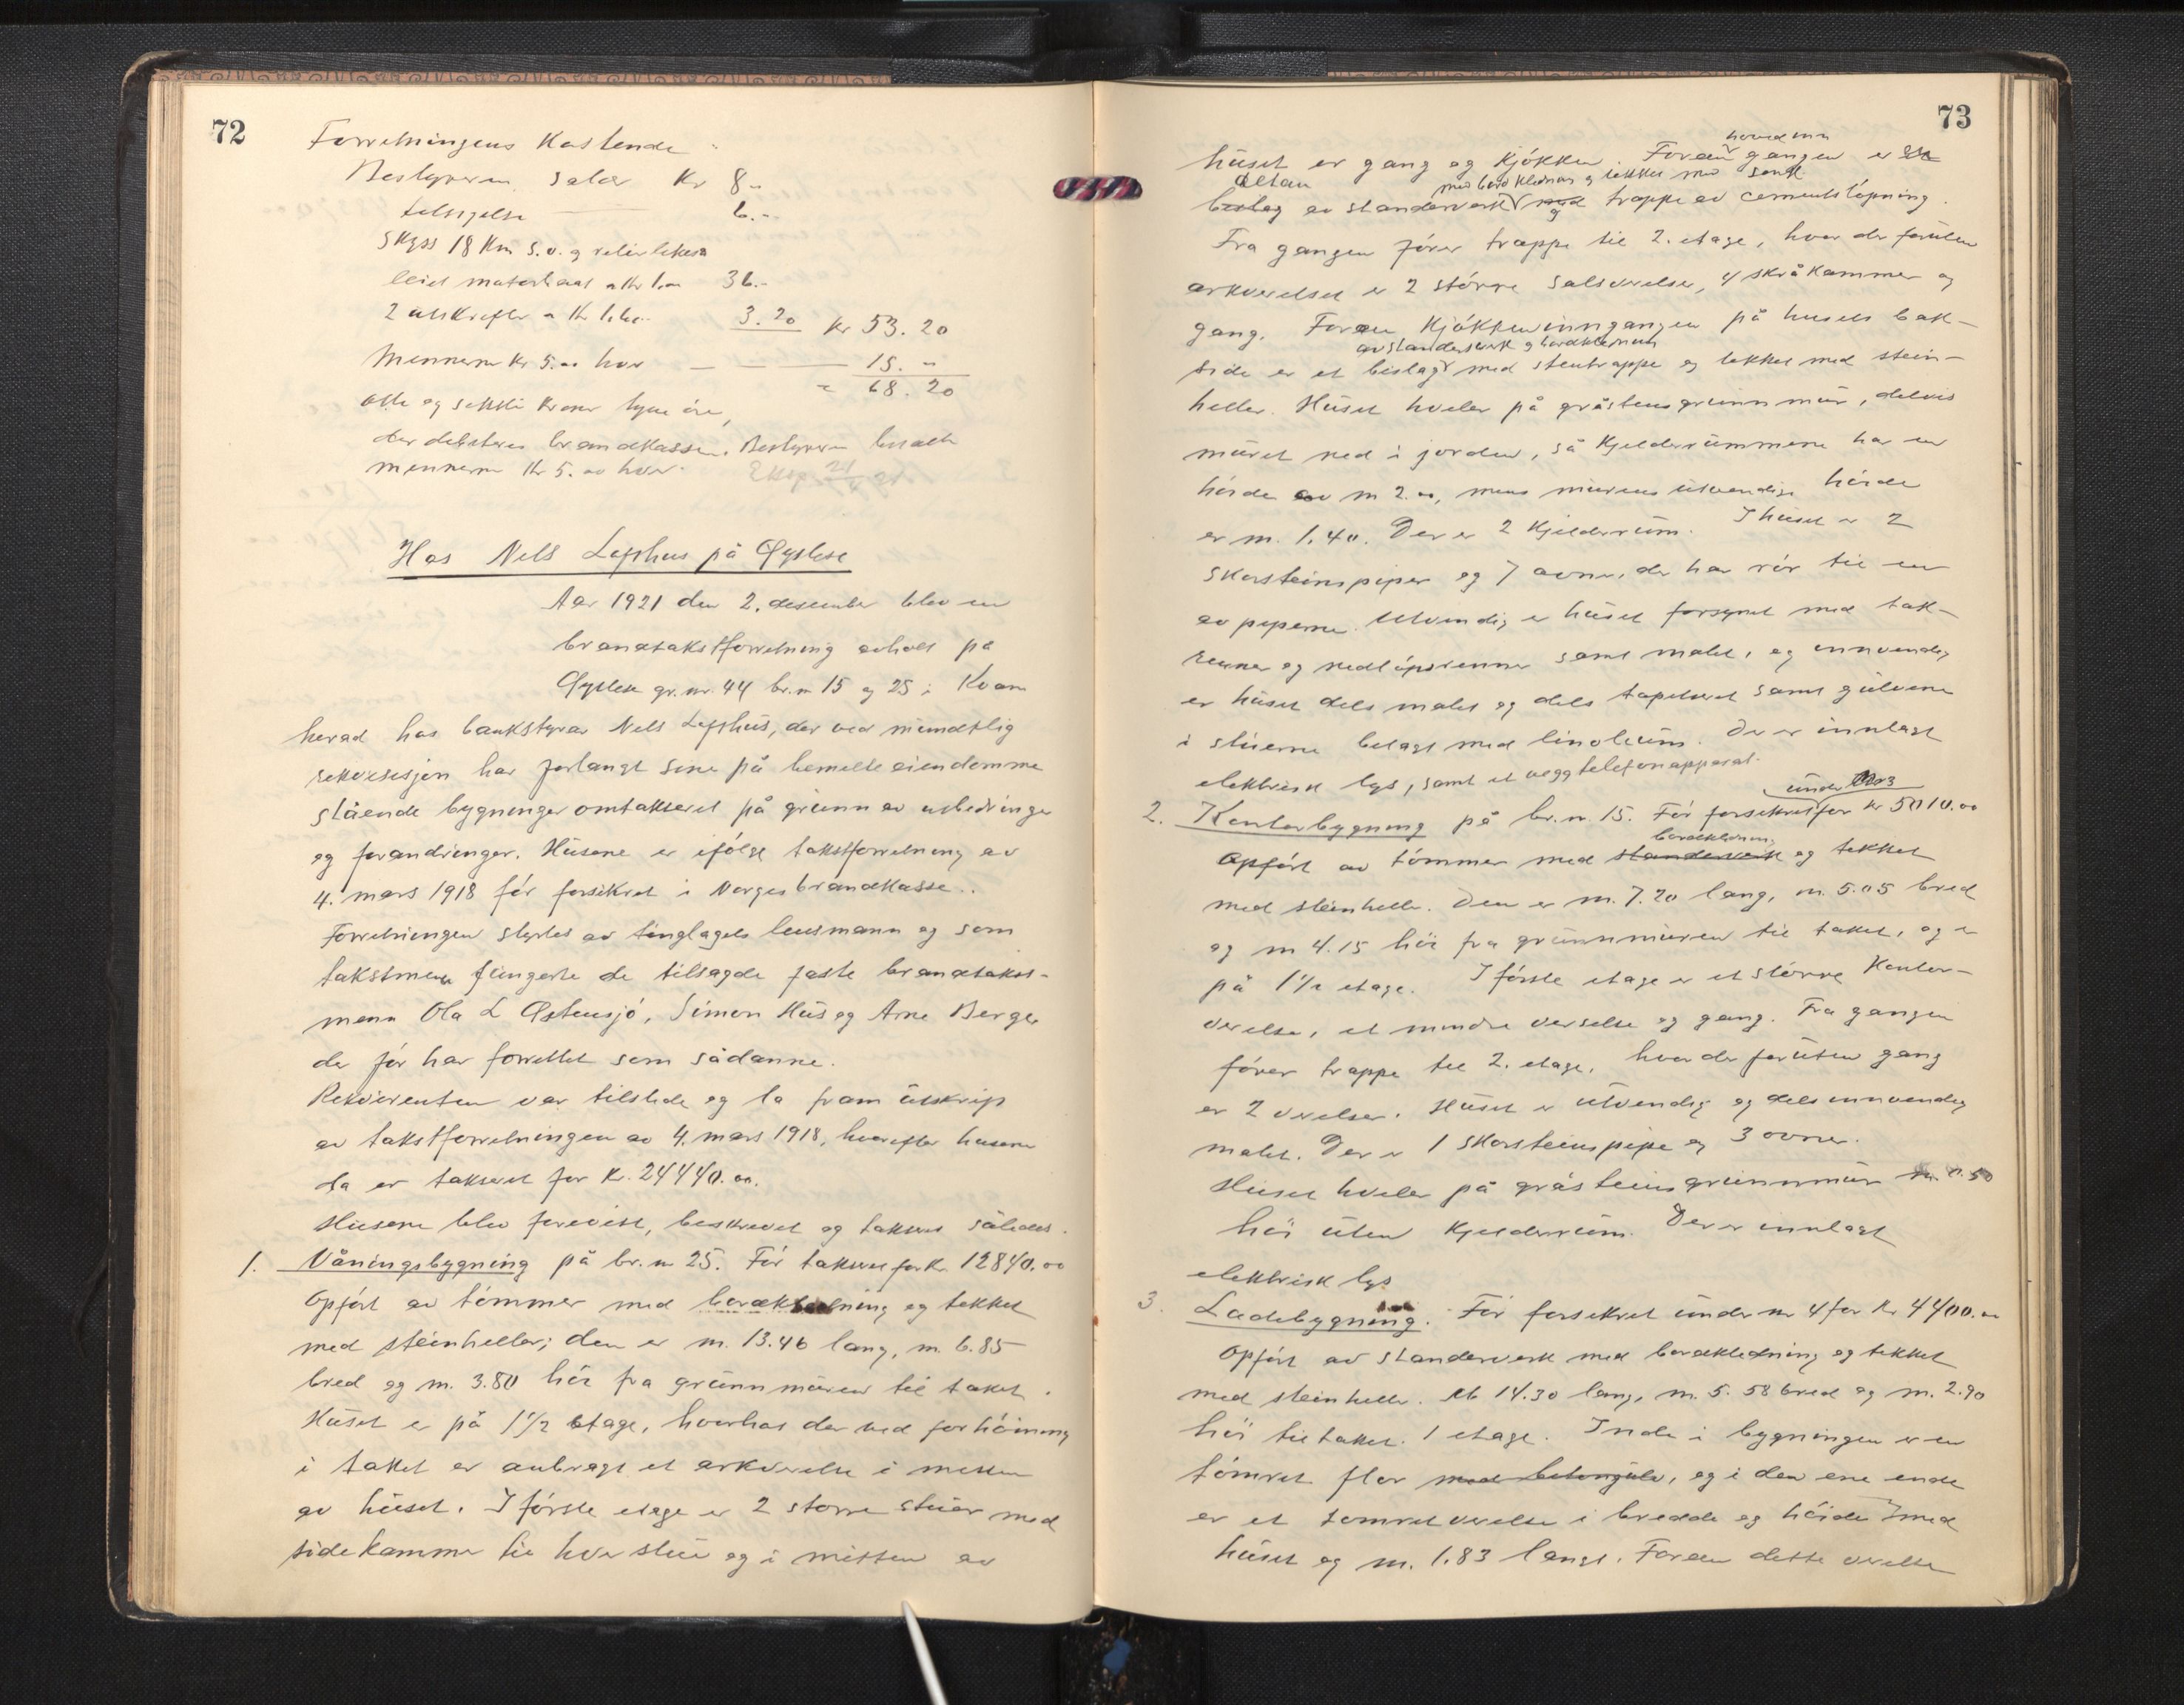 72
Forretningens Kostende:
Bestyreren salær Kr 8.-
tilsigelse 6.-
Skyss 18 Km s.v. og
leiet materiaal a Kr 1.00 36.-
2 utskrifter a Kr 1.60 3.20 Kr 53.20
Mennerne Kr 5.00 hver — — — 15.-
68.20
otte og sekkti kroner tyve øre,
der debiteres brandkassen. Bestyreren betalte
mennerne Kr 5.00 hver.
Hos Nils Lofthus på Øystese
Aar 1921 den 2. desember blev en
brandtakstforretning avholt på
Øystese gr.nr. 44 br.nr 15 og 25 i Kvam
herad hos bankstyrar Nils Lofthus, der ved mundtlig
rekvisisjon har forlangt sine på bemelte eiendomme
stående bygninger omtaksert på grunn av utbedringer
og forandringer. Husene er ifølge takstforretning av
4. mars 1918 før forsikret i Norges brandkasse..
Forretningen styrtes av tinglagets lensmann og som
takstmenn fungerte de tilsagde faste brandtakst-
menn Ola L Østensjø, Simon Hus og Arne Berge,
der før har forrettet som sådanne.
Rekvirenten var tilstede og la fram utskrift
av takstforretningen av 4. mars 1918, hvorefter husene
da er taksert for Kr. 24440.00.
Husene blev forevist, beskrevet og taksert således.
1. Våningsbygning på br.nr 25. Før taksert for Kr. 12840.00
Opført av tømmer med bordkledning og tekket
med steinheller; den er m. 13.46 lang, m. 6.85
bred og m. 3.80 høi fra grunnmuren til taket.
Huset er på 1 1/2 etage, hvorhos der ved forhøining
i taket er anbragt et arkværelse i mitten
av huset. I første etage er 2 større stuer med
sidekammer til hver stue og i mitten av
73
huset er gang og kjøkken. Foran hovedinngangen er
altan av standerverk med bordkledning og tekket med og trappe av cementstøpning.
Fra gangen fører trappe til 2. etage, hvor der foruten
arkværelset er 2 større salsværelser, 4 skråkammer og
gang. Foran Kjøkkeninngangen på husets bak-
av standerverk og bordkledning
side er et bislag med stentrappe og tekket med stein-
heller. Huset hviler på gråstensgrunnmur, delvis
muret ned i jorden, så kjelderrummene har en
høide av m 2.00, mens murens utvendige høide
er m. 1.40. Der er 2 kjelderrum. I huset er 2
skorsteinspiper og 7 ovner, der har rør til en
av piperne. Utvendig er huset forsynet med tak-
renner og nedløpsrenner samt malet, og innvendig
er huset dels malet og dels tapetsert samt gulvene
i stuerne belagt med linoleum. Der er innlagt
elektrisk lys, samt et veggtelefonapparat.
2. Kontorbygning på br.nr. 15. Før forsikret under Nr 3 for Kr 5010.00
bordkledning
Opført av tømmer med standerverk og tekket
med steinheller. Den er m. 7.20 lang, m. 5.05 bred
og m 4.15 høi fra grunnmuren til taket, og er
på 1 1/2 etage. I første etage er et større Kontor-
værelse, et mindre værelse og gang. Fra gangen
fører trappe til 2. etage, hvor der foruten gang
er 2 værelser. Huset er utvendig og dels innvendig
malet. Der er 1 skorsteinspipe og 3 ovner.
Huset hviler på gråsteinsgrunnmur m 0.50
høi uten kjelderrum. Der er innlagt
elektrisk lys
3. Ladebygning. Før forsikret under nr 4 for Kr 4400.00
Opført av standerverk med bordkledning og tekket
med steinheller. M 14.30 lang, m. 5.58 bred og m. 2.90
høi til taket. 1 etage. Inde i bygningen er en
tømret flor med betongulv, og i den ene ende
er et tømret værelse i bredde og høide med
huset og m. 1.83 langt. Foran dette værelse